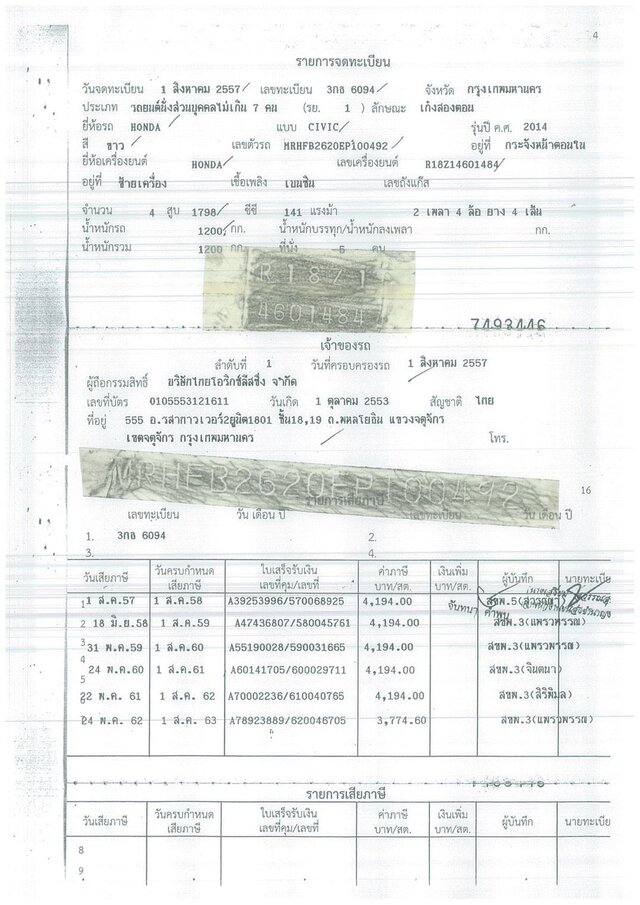 4
รายการจดทะเบียน
วันจดทะเบียน 1 สิงหาคม 2557 เลขทะเบียน 3กอ 6094 จังหวัด กรุงเทพมหานคร
ประเภท รถยนต์นั่งส่วนบุคคลไม่เกิน 7 คน (รย. 1 ) ลักษณะ เก๋งสองตอน
ยี่ห้อรถ HONDA แบบ CIVIC รุ่นปี ค.ศ. 2014
สี ขาว เลขตัวรถ MRHFB2620EP100492 อยู่ที่ กระจังหน้าตอนใน
ยี่ห้อเครื่องยนต์ HONDA เลขเครื่องยนต์ R18Z14601484
อยู่ที่ ซ้ายเครื่อง เชื้อเพลิง เบนซิน เลขถังแก๊ส
จำนวน 4 สูบ 1798 ซีซี 141 แรงม้า 2 เพลา 4 ล้อ ยาง 4 เส้น
น้ำหนักรถ 1200 กก. น้ำหนักบรรทุก/น้ำหนักลงเพลา กก.
น้ำหนักรวม 1200 กก. ที่นั่ง 5 คน
R18Z1
4601484
7493446
เจ้าของรถ
ลำดับที่ 1 วันที่ครอบครองรถ 1 สิงหาคม 2557
ผู้ถือกรรมสิทธิ์ บริษัทไทยโอริกซ์ลีสซิ่ง จำกัด
เลขที่บัตร 0105553121611 วันเกิด 1 ตุลาคม 2553 สัญชาติ ไทย
ที่อยู่ 555 อ.รสาทาวเวอร์2ยูนิต1801 ชั้น18,19 ถ.พหลโยธิน แขวงจตุจักร
เขตจตุจักร กรุงเทพมหานคร โทร.
MRHFB2620EP100492
16
รายการเสียภาษี
เลขทะเบียน วัน เดือน ปี เลขทะเบียน วัน เดือน ปี
1. 3กอ 6094 2.
3. 4.
วันเสียภาษี วันครบกำหนดเสียภาษี ใบเสร็จรับเงิน เลขที่คุม/เลขที่ ค่าภาษี บาท/สต. เงินเพิ่ม บาท/สต. ผู้บันทึก นายทะเบีย
1 1 ส.ค.57 1 ส.ค.58 A39253996/570068925 4,194.00 สขพ.5
จันทนา
2 18 มิ.ย.58 1 ส.ค.59 A47436807/580045761 4,194.00 สขพ.3(แพรวพรรณ)
3 31 พ.ค.59 1 ส.ค.60 A55190028/590031665 4,194.00 สขพ.3(แพรวพรรณ)
4
24 พ.ค.60 1 ส.ค.61 A60141705/600029711 4,194.00 สขพ.3(จินตนา)
5
22 พ.ค. 61 1 ส.ค. 62 A70002236/610040765 4,194.00 สขพ.3(สิริพิมล)
24 พ.ค. 62 1 ส.ค. 63 A78923889/620046705 3,774.60 สขพ.3(แพรวพรรณ)
รายการเสียภาษี
วันเสียภาษี วันครบกำหนดเสียภาษี ใบเสร็จรับเงิน เลขที่คุม/เลขที่ ค่าภาษี บาท/สต. เงินเพิ่ม บาท/สต. ผู้บันทึก นายทะเบีย
8
9